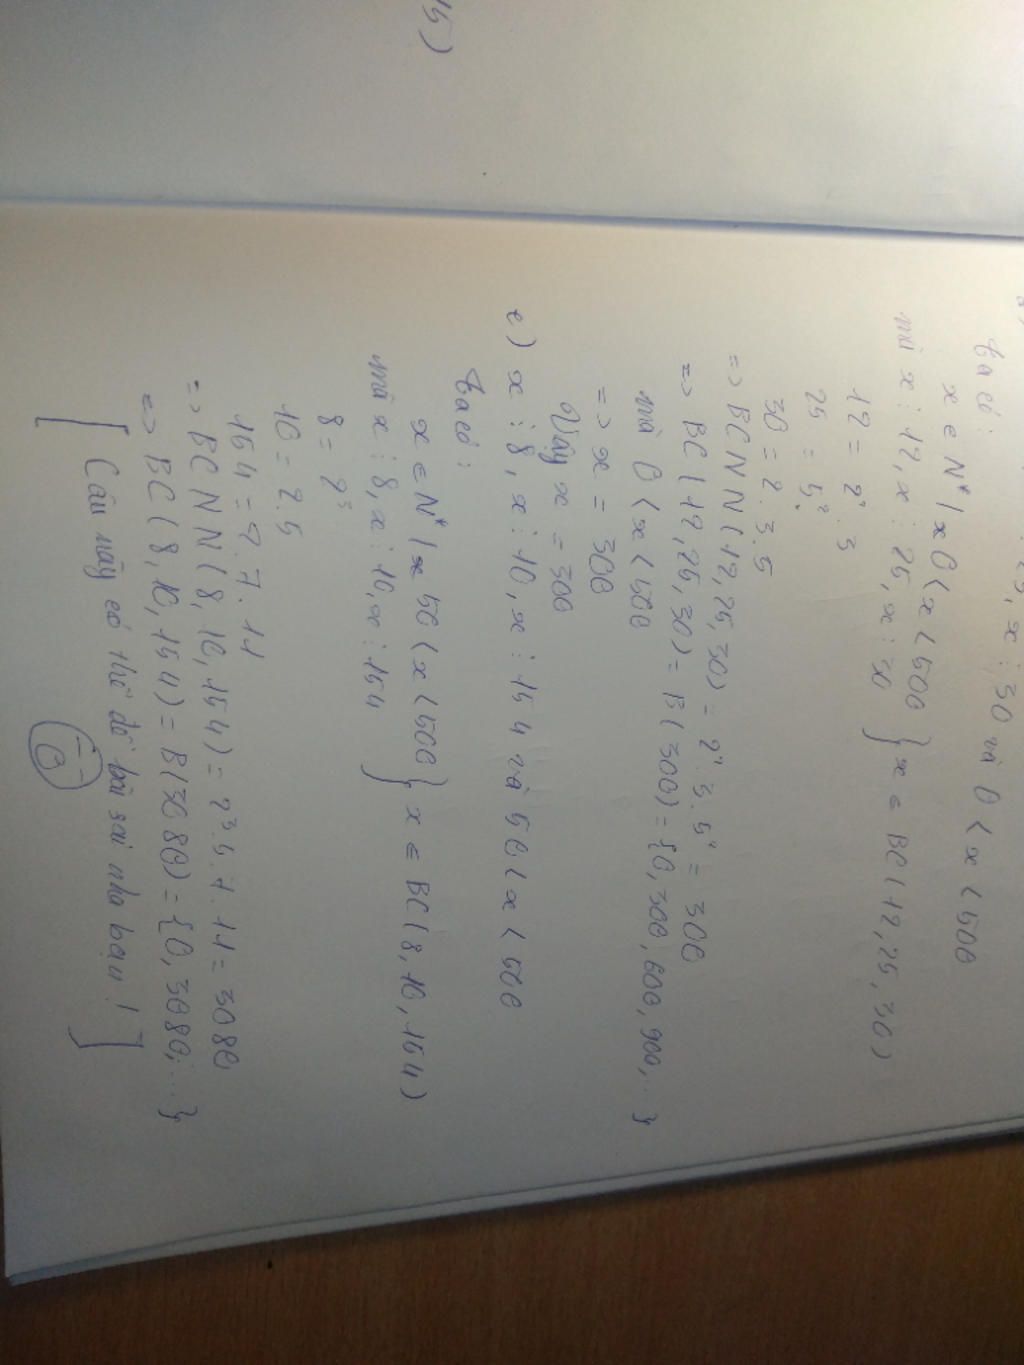 15)
25, x ⋮ 30 và 0 < x < 500
Ta có:
x ∈ N* / x 0 < x < 500
mà x ⋮ 12, x ⋮ 25, x ⋮ 30 } x ∈ BC (12, 25, 30)
12 = 2². 3
25 = 5²
30 = 2. 3. 5
=> BCNN (12, 25, 30) = 2². 3. 5² = 300
=> BC (12, 25, 30) = B (300) = {0, 300, 600, 900, ... }
mà 0 < x < 500
=> x = 300
Vậy x = 300
e) x ⋮ 8, x ⋮ 10, x ⋮ 154 và 50 < x < 500
Ta có:
x ∈ N* / x 50 < x < 500 } x ∈ BC (8, 10, 154)
mà x ⋮ 8, x ⋮ 10, x ⋮ 154
8 = 2³
10 = 2. 5
154 = 2. 7. 11
=> BCNN (8, 10, 154) = 2³. 5. 7. 11 = 3080
=> BC (8, 10, 154) = B (3080) = {0, 3080, ... }
[ Câu này có thể đề bài sai nha bạn ! ]